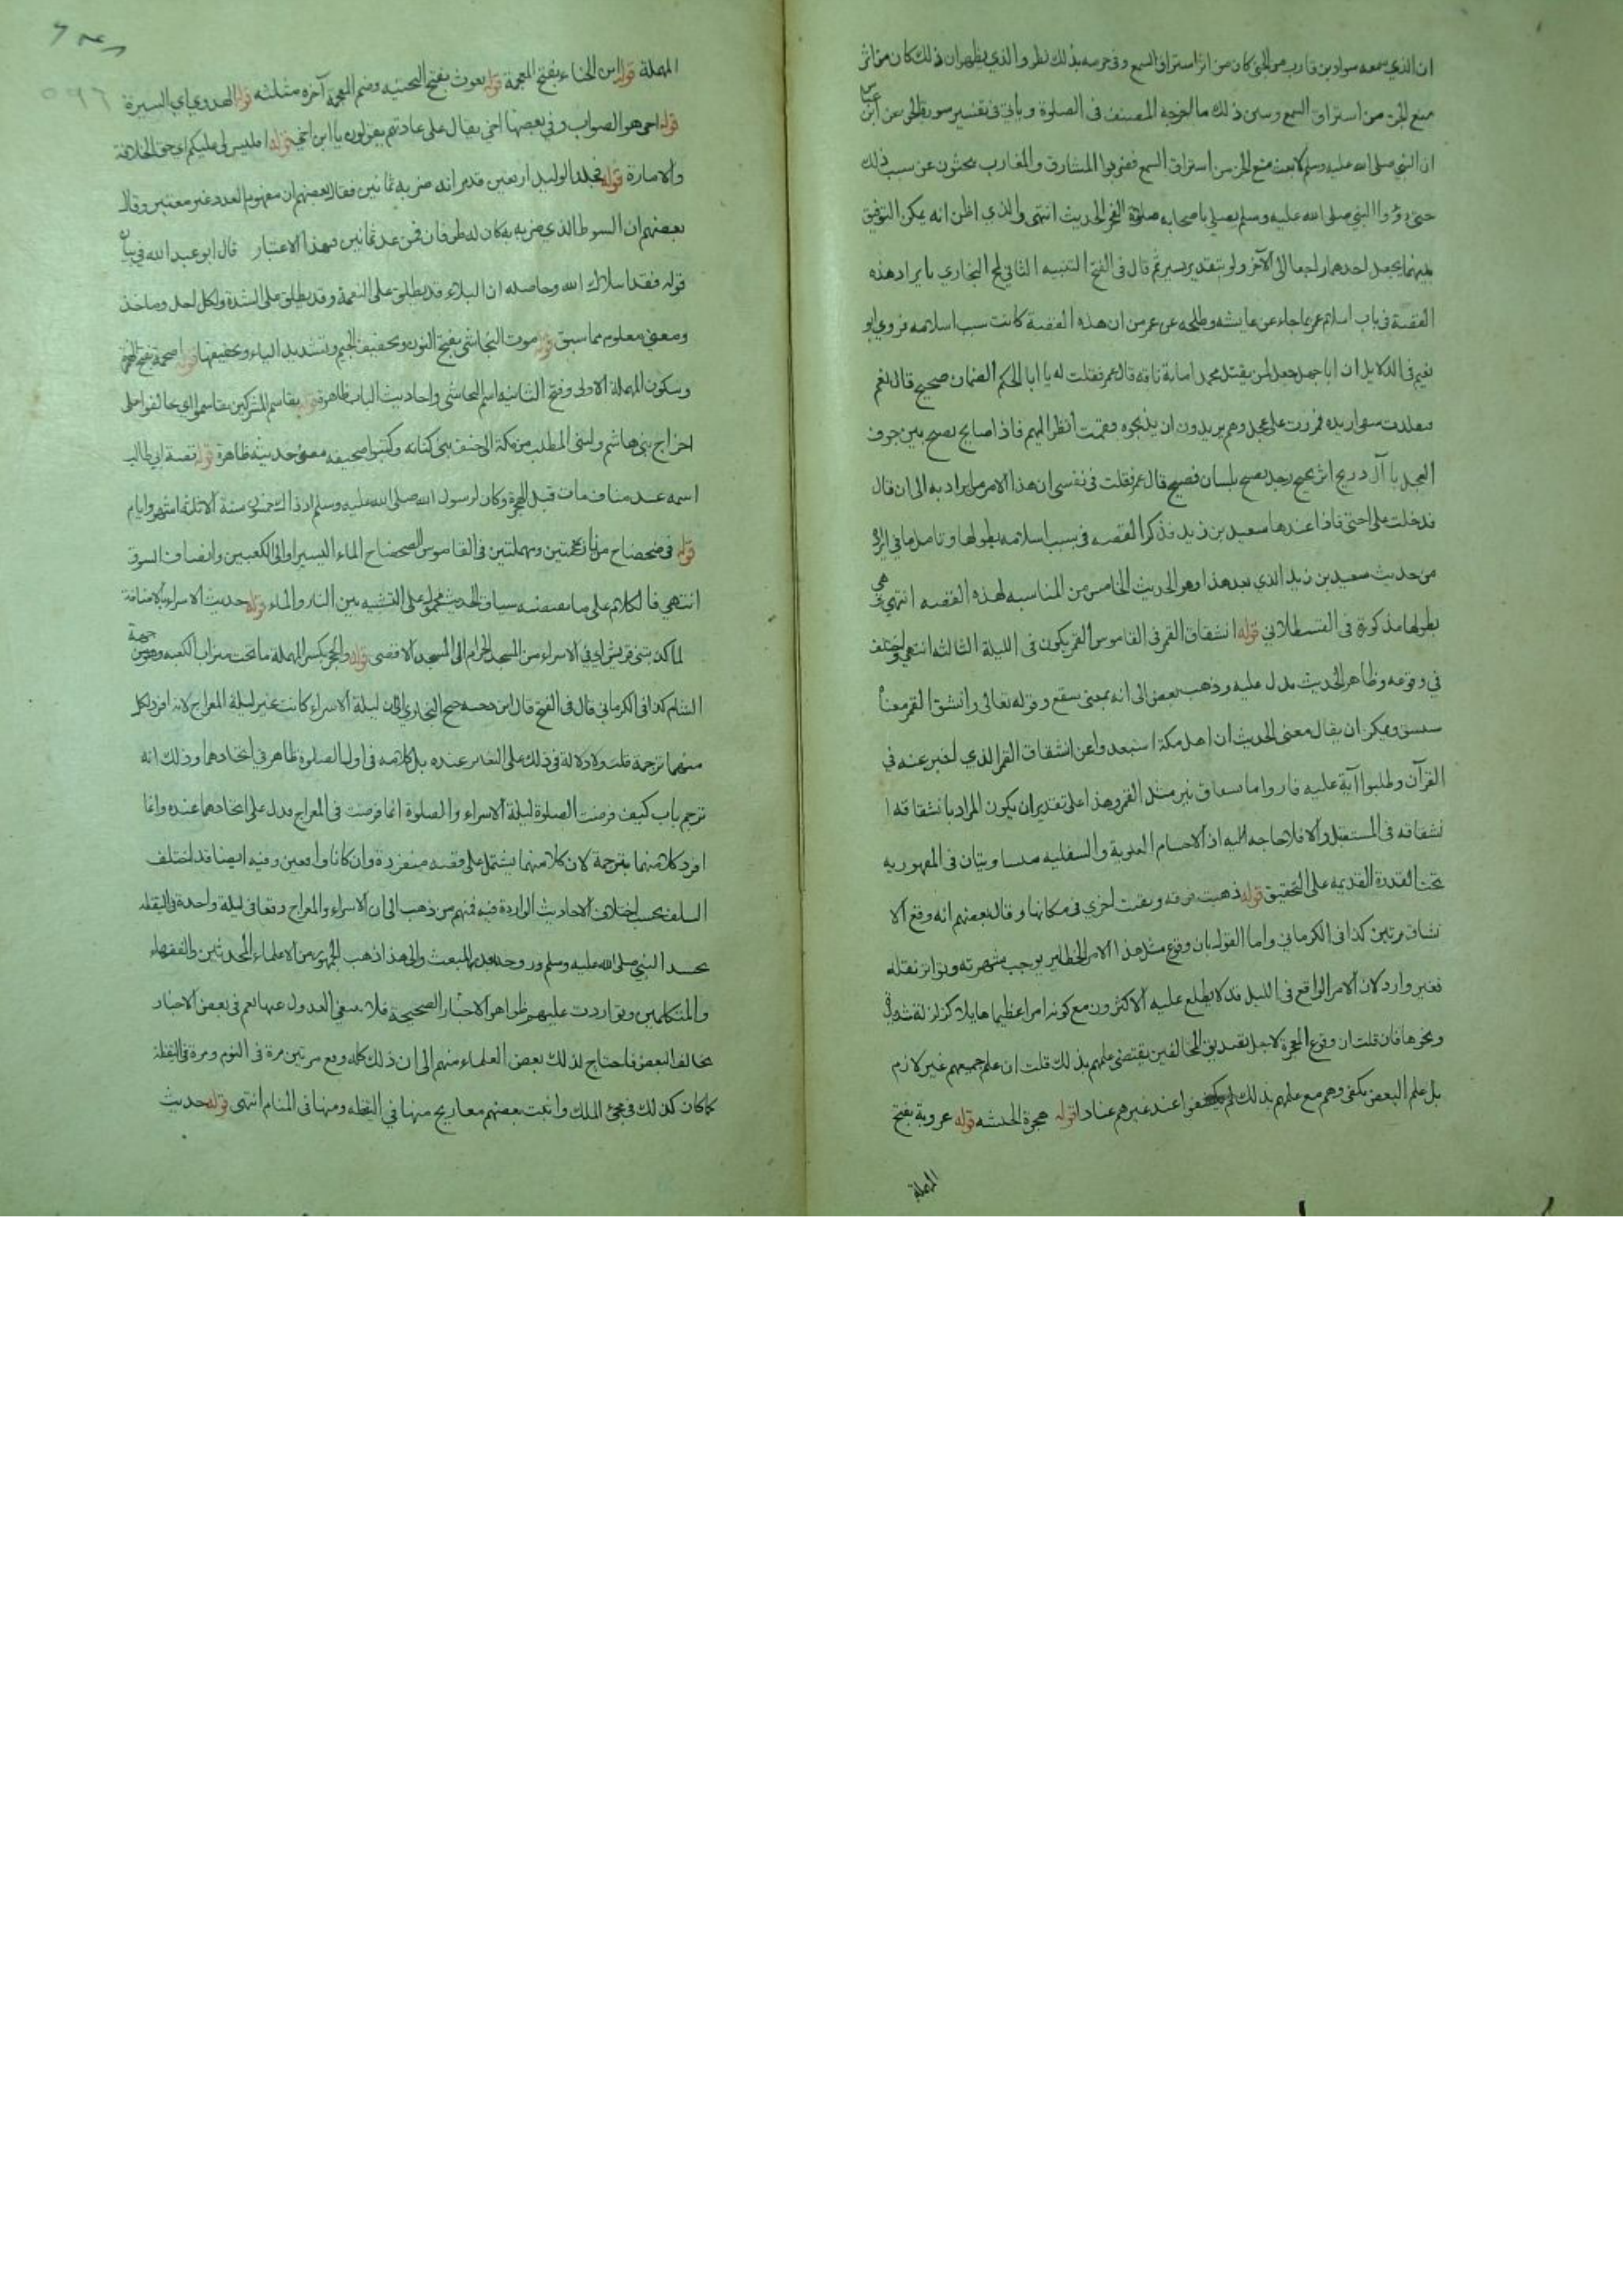 ان الذي سمعه سواد بن قارب من الجن كان من اثر استراق السمع وفي جزمه بذلك نظر والذي يظهر ان ذلك كان من اثر
منع الجن من استراق السمع ويبين ذلك ما اخرجه المصنف في الصلوة ويأتي في تفسير سورة الجن عن ابن عباس
ان النبي صلى الله عليه وسلم لما بعث منع الجن من استراق السمع فضربوا المشارق والمغارب يبحثون عن سبب ذلك
حتى رؤوا النبي صلى الله عليه وسلم يصلي باصحابه صلوة الفجر الحديث انتهى والذي اظن انه يمكن التوفيق
بينهما بجعل احدهما راجعا الى الآخر ولو بتقدير يسير ثم قال في الفتح التنبيه الثاني لمح البخاري بايراد هذه
القصة في باب اسلام عمر بما جاء عن عايشه وطلحه عن عمر من ان هذه القصة كانت سبب اسلامه فروى ابو
نعيم في الدلايل ان ابا جهل جعل لمن يقتل محمدا ماية ناقه قال عمر فقلت له يا ابا الحكم الضمان صحيح قال نعم
فتقلدت سيفي اريده فمررت على عجل وهم يريدون ان يذبحوه فقمت انظر اليهم فاذا صايح يصيح من جوف
العجل يا آل ذريح امر نجيح رجل يصيح بلسان فصيح قال عمر فقلت في نفسي ان هذا الامر ما يراد به الا انا قال
فدخلت على اختي فاذا عندها سعيد بن زيد فذكر القصه في سبب اسلامه بطولها وتامل ما في ايراد
من حديث سعيد بن زيد الذي بعد هذا وهو الحديث الخامس من المناسبه لهذه القصه انتهى هي
بطولها مذكورة في القسطلاني قوله انشقاق القمر في القاموس القمر يكون في الليلة الثالثه انتهى واختلف
في وقوعه وظاهر الحديث يدل عليه وذهب بعض الى انه بمعنى سيقع وقوله تعالى وانشق القمر معناه
سينشق ويمكن ان يقال معنى الحديث ان اهل مكة استبعدوا عن انشقاق القمر الذي اخبر عنه في
القرآن وطلبوا آية عليه فاروا ما نير مثل القمر وهذا على تقدير ان يكون المراد بانشقاقه ا
نشقاقه في المستقبل والا فلا حاجه اليه اذ الاجسام العلوية والسفليه متساويتان في المقهوريه
تحت القدرة القديمه على التحقيق قوله ذهبت فرقه وبقيت اخرى في مكانها وقال بعضهم انه وقع الا
نشاق مرتين كذا في الكرماني واما القول بان وقوع مثل هذا الامر الخطير يوجب شهرته وتواتر نقله
فغير وارد لان الامر الواقع في الليل قد لا يطلع عليه الاكثرون مع كونه امرا عظيما هايلا كزلزلة شديدة
ونحوها فان قلت ان وقوع المعجزة لاجل تصديق المخالفين يقتضي علمهم بذلك قلت ان علم جميعهم غير لازم
بل علم البعض يكفي وهم مع علمهم بذلك لم عند غيرهم عنادا قوله هجرة الحبشه قوله عروبة بفتح
المهملة
المهملة قوله ابن الخناء بفتح المعجمة قوله يعوث بفتح التحتيه وضم المعجمة آخره مثلثه قوله الهدي اي السيرة
قوله اخي هو الصواب وفي بعضها اختي يقال على عادتهم يقولون يا ابن اخي قوله افليس لي عليكم اي حق الخلافة
والامارة قوله فجلد الوليد اربعين قد مر انه ضربه ثمانين فقال بعضهم ان مفهوم العدد غير معتبر وقال
بعضهم ان السوط الذي ضربه به كان له طرفان فمن عد ثمانين فبهذا الاعتبار قال ابو عبد الله في بيان
قوله فقد ابتلاك الله وحاصله ان البلاء قد يطلق على النعمة وقد يطلق على الشدة ولكل اصل وماخذ
ومعنى معلوم مما سبق قوله موت النجاشي بفتح النون وتخفيف الجيم وتشديد الياء وتخفيفها قوله اصحمة بفتح الهمزة
وسكون المهملة الاولى وفتح الثانيه اسم النجاشي واحاديث الباب ظاهرة قوله تقاسم المشركين تقاسموا اي تحالفوا على
اخراج بني هاشم وبني المطلب من مكة الى خيف بني كنانه وكتبوا صحيفه معنى حديثه ظاهرة قوله قصة ابي طالب
اسمه عبد مناف مات قبل الهجرة وكان لرسول الله صلى الله عليه وسلم اذ ذاك خمسون سنة الا ثلثة اشهر وايام
قوله في ضحضاح من نار بمعجمتين ومهملتين في القاموس الضحضاح الماء اليسير او الى الكعبين وانصاف السوق
انتهى فالكلام على ما يقتضيه سياق الحديث محمول على التشبيه بين النار والماء قوله حديث الاسراء بالاضافة
لما كذبتني قريش اي في الاسراء من المسجد الحرام الى المسجد الاقصى قوله والحجر بكسر المهملة ما تحت ميزاب الكعبه وهو من جهة
الشام كذا في الكرماني قال في الفتح قال ابن دحيه جنح البخاري الى ان ليلة الاسراء كانت غير ليلة المعراج لانه افرد لكل
منهما ترجمة قلت ولا دلالة في ذلك على التغاير عنده بل كلامه في اول الصلوة ظاهر في اتحادهما وذلك انه
ترجم باب كيف فرضت الصلوة ليلة الاسراء والصلوة انما فرضت في المعراج فدل على اتحادهما عنده وانما
افرد كلا منهما بترجمة لان كلا منهما يشتمل على قصه منفردة وان كانا واقعين وفيه ايضا قد اختلف
السلف بحسب اختلاف الاحاديث الواردة فيه فمنهم من ذهب الى ان الاسراء والمعراج وقعا في ليلة واحدة في اليقظه
بجسد النبي صلى الله عليه وسلم وروحه بعد المبعث والى هذا ذهب الجمهور من الاعلماء المحدثين والفقهاء
والمتكلمين وتواردت عليهم ظواهر الاخبار الصحيحة فلا ينبغي العدول عنها نعم في بعض الاخبار
يخالف البعض فاحتاج لذلك بعض العلماء منهم الى ان ذلك كله وقع مرتين مرة في النوم ومرة في اليقظه
كما كان كذلك في مجئ الملك واثبت بعضهم معاريج منها في اليقظه ومنها في المنام انتهى قوله حديث